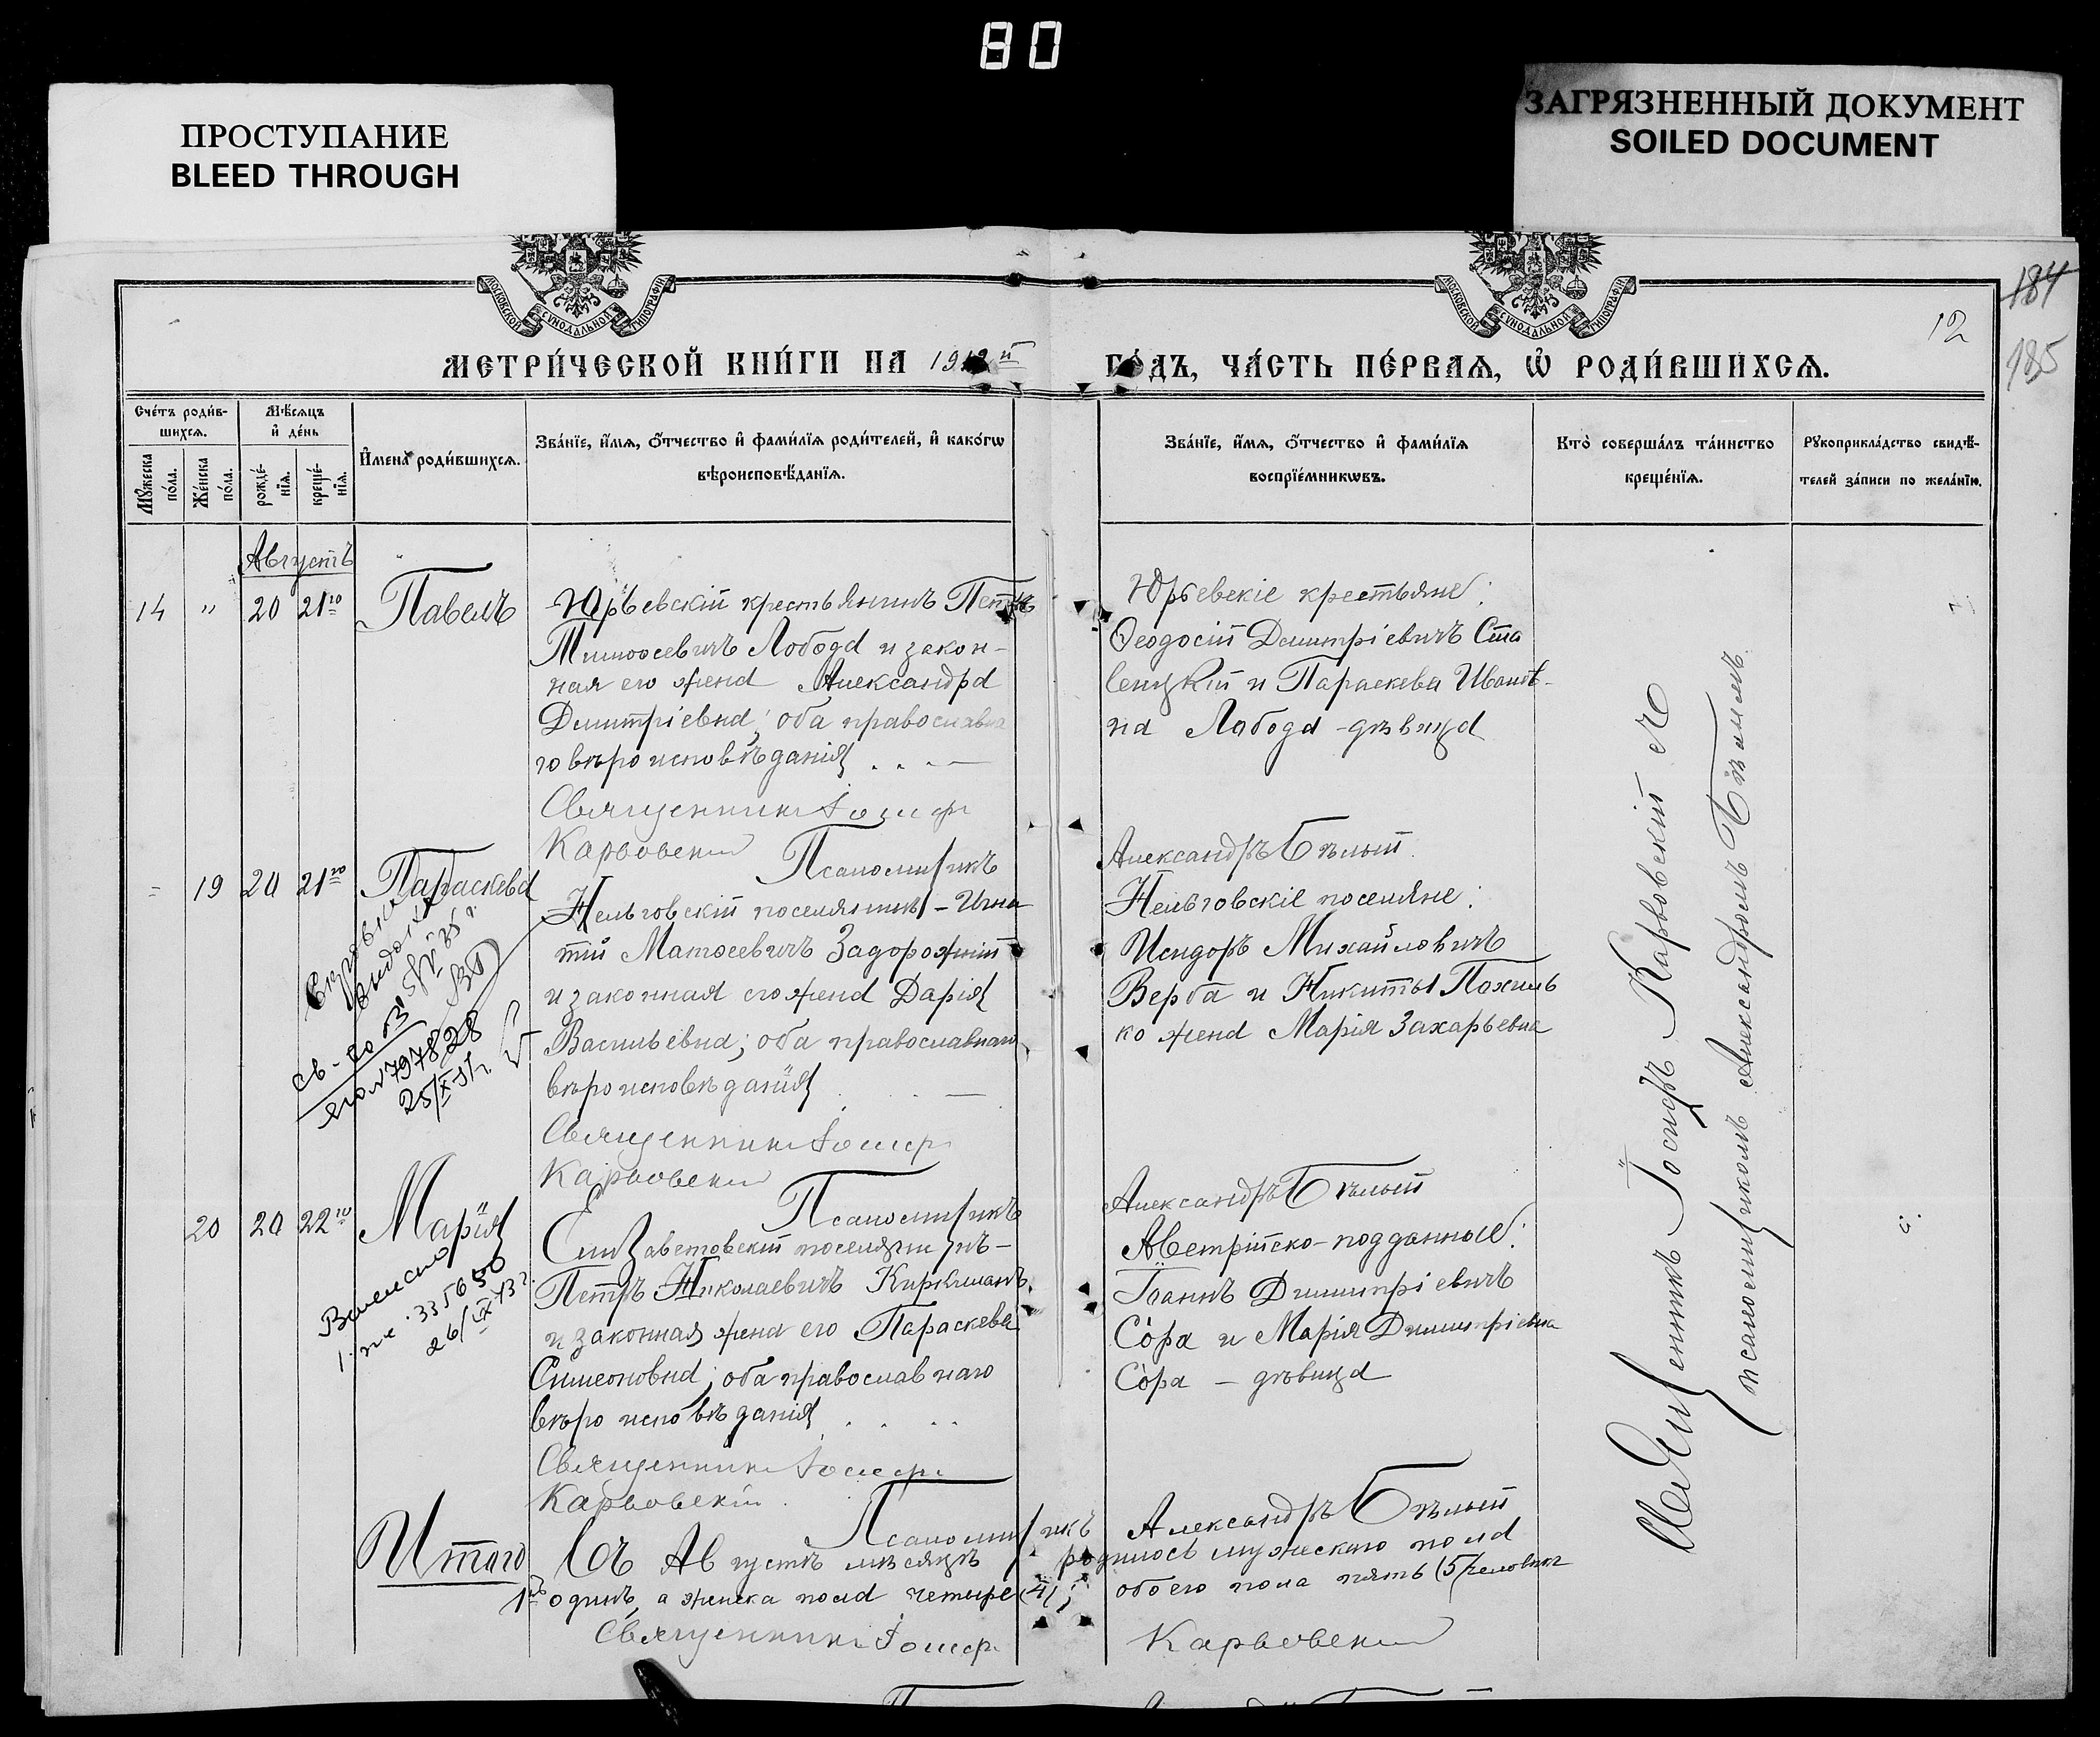 80
ПРОСТУПАНИЕ
BLEED THROUGH
ЗАГРЯЗНЕННЫЙ ДОКУМЕНТ
SOILED DOCUMENT
МОСКОВСКОЙ СѴНОДАЛЬНОЙ ТИПОГРАФІИ
МОСКОВСКОЙ СѴНОДАЛЬНОЙ ТИПОГРАФІИ
184
12
185
МЕТРИ́ЧЕСКОЙ КНИ́ГИ НА 1912й
ГО́ДЪ, ЧА́СТЬ ПЕ́РВАѦ, Ѡ҆ РОДИ́ВШИХСѦ.
Сче́тъ роди́в-
шихсѧ.
Мꙋ́жеска по́ла.
Же́нска по́ла.
Мѣ́сѧцъ
и҆ де́нь
рожде́-
нїѧ.
креще́-
нїѧ.
И҆мена̀ роди́вшихсѧ.
Зва́нїе, и҆́мѧ, ѻ҆́тчество и҆ фами́лїѧ роди́телей, и҆ како́гѡ
вѣроисповѣ́данїѧ.
Зва́нїе, и҆́мѧ, ѻ҆́тчество и҆ фами́лїѧ
воспрїе́мникѡвъ.
Кто̀ соверша́лъ та́инство
креще́нїѧ.
Рꙋкоприкла́дство свидѣ́-
телей за́писи по жела́нїю.
Августъ
14 " 20 21го Павелъ
Юрьевскій крестьянинъ Петръ
Тимоѳеевичъ Лобода и закон-
ная его жена Александра
Димитріевна; оба православна
го вѣроисповѣданія
Священникъ Іосиф
Карвовскій
Псаломщикъ
Юрьевскіе крестьяне:
Ѳеодосій Димитріевичъ Ста
вецкій и Параскева Иванов-
на Лобода - дѣвица
Александръ Бѣлый
= 19 20 21го Параскева
св-во
797828
25/IX
Нельговскій поселянинъ - Игна
тій Матѳеевичъ Задорожній
и законная его жена Дарія
Васильевна; оба православнаго
вѣроисповѣданія
Священникъ Іосиф
Карвовскій
Псаломщикъ
Нельговскіе поселяне:
Исидоръ Михайловичъ
Верба и Никиты Похиль
ко жена Марія Захарьевна
Александръ Бѣлый
20 20 22го Марія
335650
26/IX
Елизаветовскій поселянинъ -
Петръ Николаевичъ Киркиманъ
и законная жена его Параскева
Симеоновна; оба православнаго
вѣроисповѣданія
Священникъ Іосиф
Карвовскій
Псаломщикъ
Австрійско-подданные:
Іоаннъ Димитріевичъ
Со̀ра и Марія Димитріевна
Со̀ра - дѣвица
Александръ Бѣлый
Священникъ Іосифъ Карвовскій съ
псаломщикомъ Александромъ Бѣлымъ
Итого
Въ Августѣ мѣсяцѣ родилось мужескаго пола
1нъ одинъ, а женска пола четыре (4); обоего пола пять (5) человѣкъ
Священникъ Іосиф Карвовскій